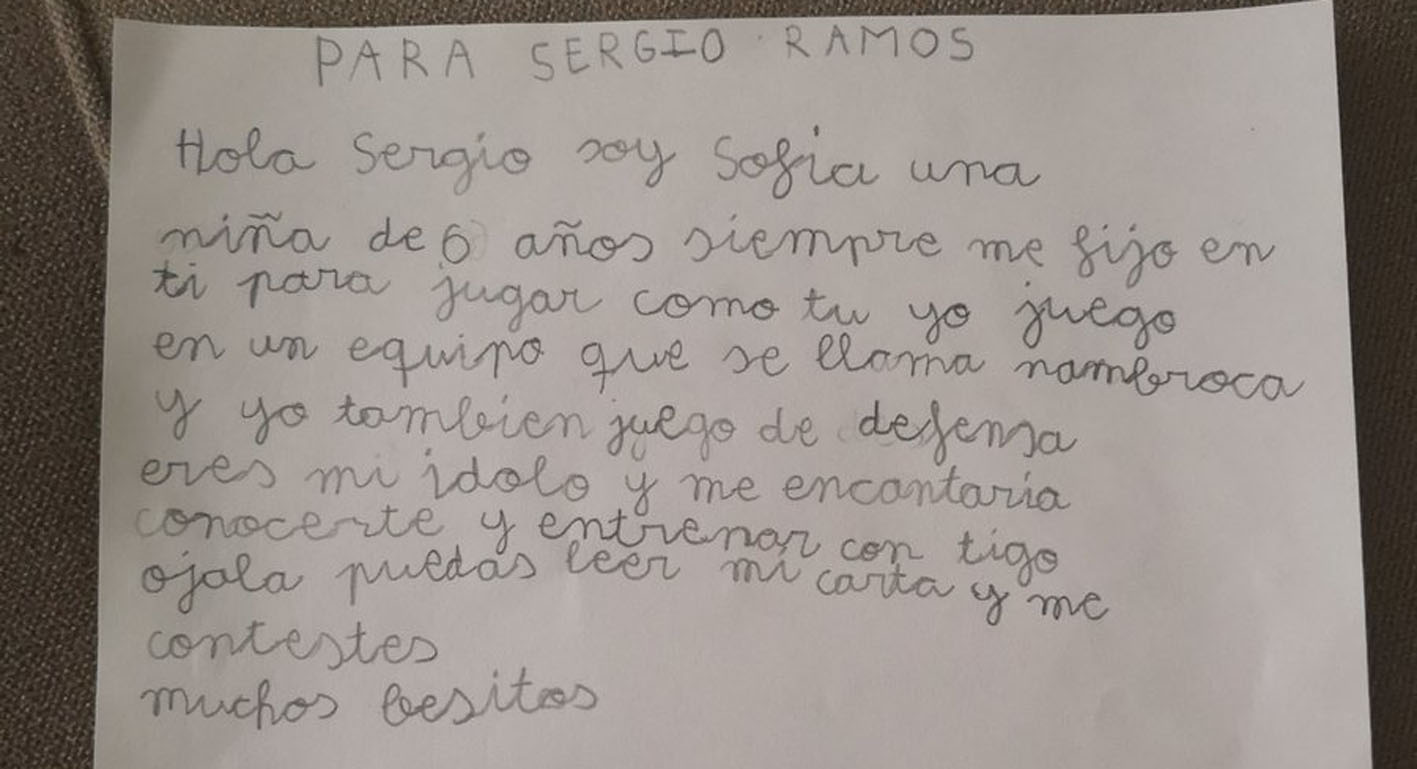 PARA SERGIO RAMOS
Hola Sergio soy Sofia una
niña de 6 años siempre me fijo en
ti para jugar como tu yo juego
en un equipo que se llama nambroca
y yo tambien juego de defensa
eres mi idolo y me encantaria
conocerte y entrenar con tigo
ojala puedas leer mi carta y me
contestes
muchos besitos